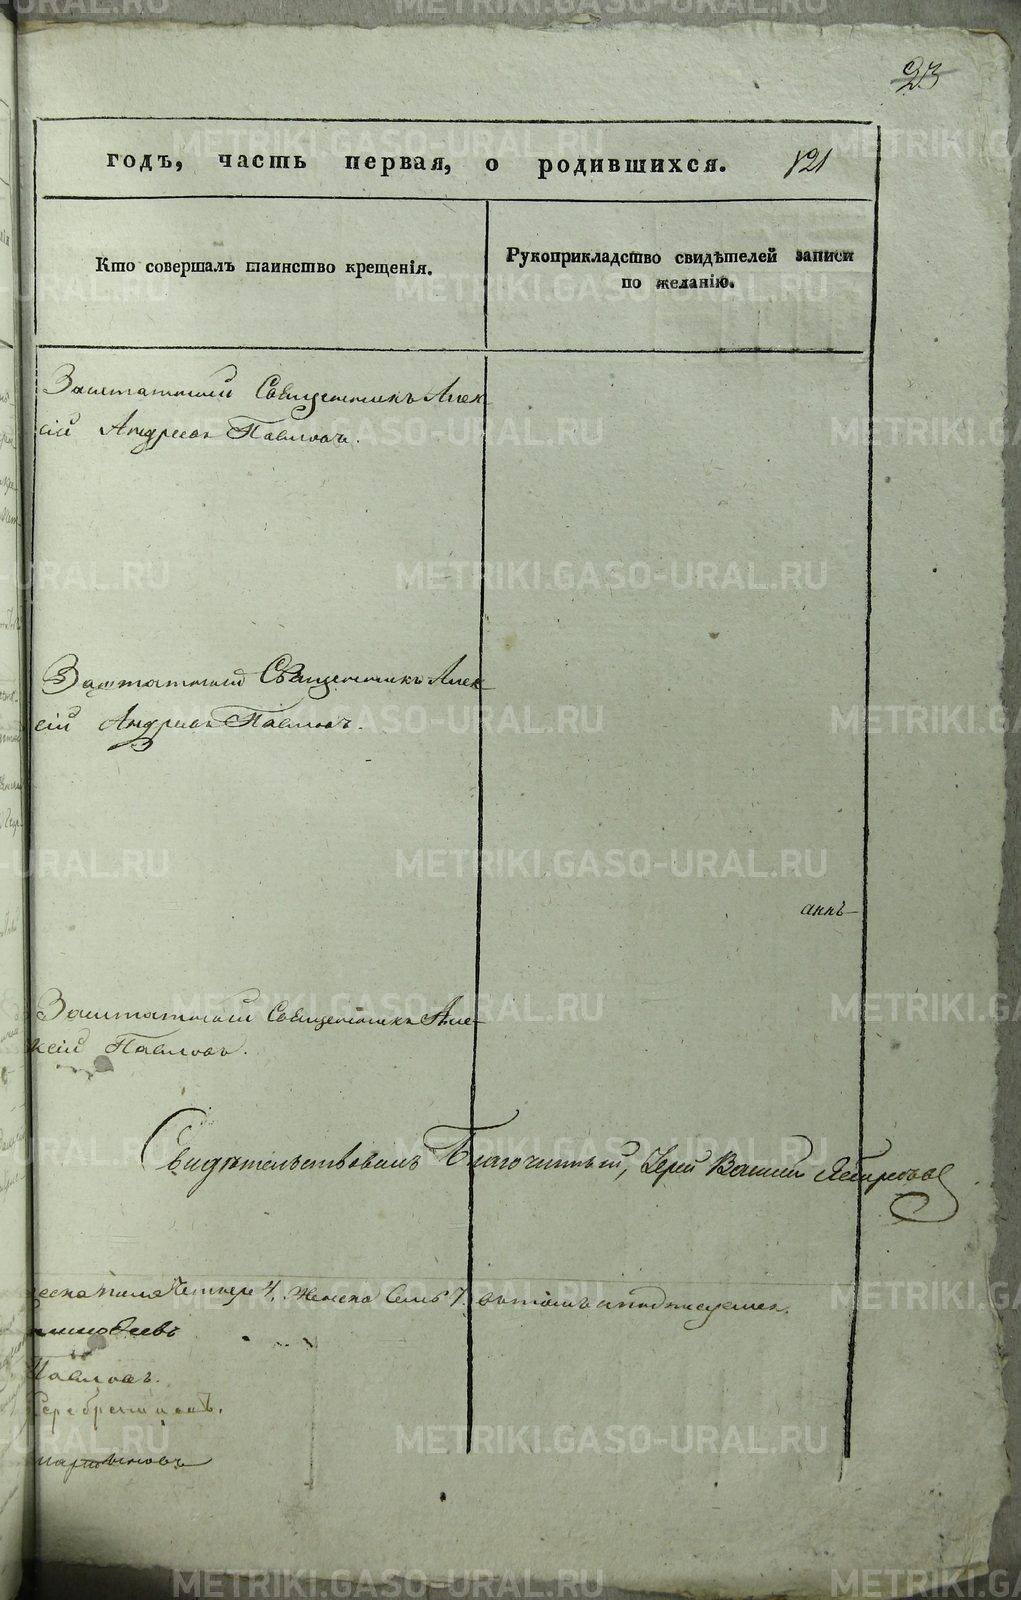 23
годъ, часть первая, о родившихся. 121
Кто совершалъ таинство крещенія.
Рукоприкладство свидѣтелей записи
по желанію.
Заштатный Священникъ Алек
сій Андреевъ Павловъ.
Заштатный Священникъ Алек
сій Андреевъ Павловъ.
аннъ
Заштатный Священникъ Але
ксій Павловъ.
Свидѣтельствовалъ Благочинный, Іерей
пола Четыре 4. Женска Семь 7. въ томъ и подписуемся.
Павловъ.
Серебренниковъ.
Мартыновъ
METRIKI.GASO-URAL.RU